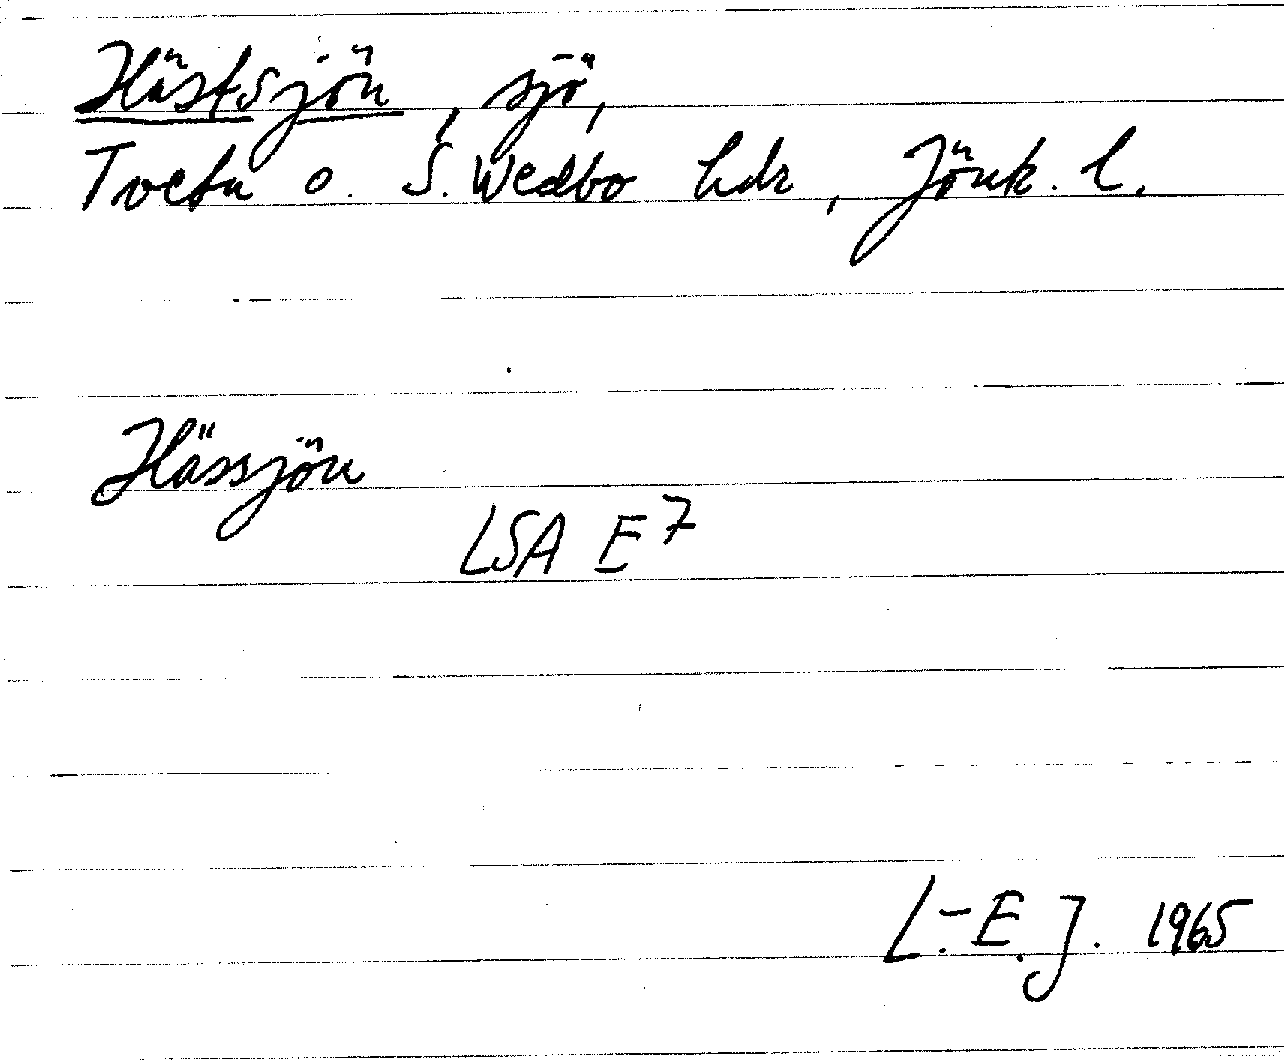 Hästsjön, sjö,
Tveta o. S. Wedbo hdr, Jönk. l.
Hässjön
LSA E7
L.-E. J. 1965